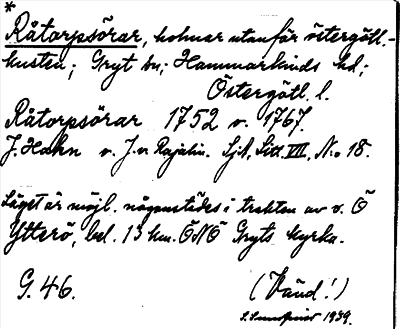 *
Råtorpsörar, holmar utanför östergötl.-
kusten; Gryt sn; Hammarkinds hd;
Östergötl. l.
Råtorpsörar 1752 v. 1767.
J. Hahn v. J. v. Rajalin. Sjk, Litt. VII, N:o 18.
Läget är möjl. någonstädes i trakten av v. Ö
Ytterö, bel. 13 km. ÖNÖ Gryts kyrka.
G. 46. (Vänd!)
1939.